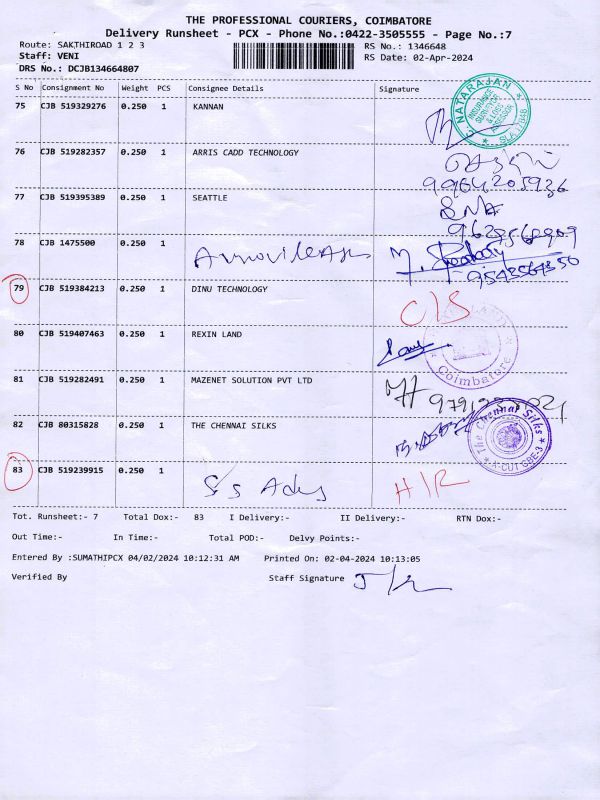 THE PROFESSIONAL COURIERS, COIMBATORE
Delivery Runsheet - PCX - Phone No.:0422-3505555 - Page No.:7
Route: SAKTHIROAD 1 2 3 RS No.: 1346648
Staff: VENI RS Date: 02-Apr-2024
DRS No.: DCJB134664807
S No Consignment No Weight PCS Consignee Details Signature
75 CJB 519329276 0.250 1 KANNAN
NATARAJAN INSURANCE SURVEYOR & LOSS ASSESSOR
76 CJB 519282357 0.250 1 ARRIS CADD TECHNOLOGY
9964205936
77 CJB 519395389 0.250 1 SEATTLE
78 CJB 1475500 0.250 1
9543564350
79 CJB 519384213 0.250 1 DINU TECHNOLOGY C/S
80 CJB 519407463 0.250 1 REXIN LAND
Coimbatore
81 CJB 519282491 0.250 1 MAZENET SOLUTION PVT LTD
82 CJB 80315828 0.250 1 THE CHENNAI SILKS
The Chennai Silks
A-CUT-CBE-3
83 CJB 519239915 0.250 1 S S Ads H/R
Tot. Runsheet:- 7 Total Dox:- 83 I Delivery:- II Delivery:- RTN Dox:-
Out Time:- In Time:- Total POD:- Delvy Points:-
Entered By :SUMATHIPCX 04/02/2024 10:12:31 AM Printed On: 02-04-2024 10:13:05
Verified By Staff Signature